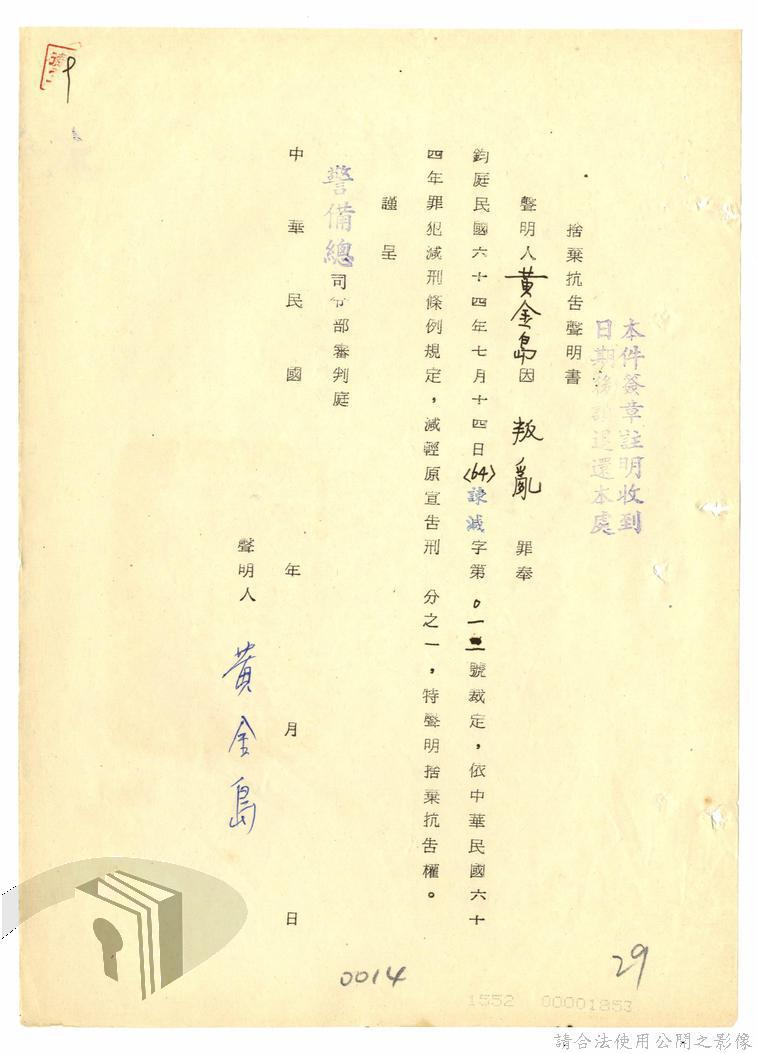 本件簽章註明收到
日期後請退還本處
捨棄抗告聲明書
聲明人黃金島因 叛亂 罪奉
鈞庭民國六十四年七月十四日(64)諫減字第0一二號裁定,依中華民國六十
四年罪犯減刑條例規定,減輕原宣告刑 分之一,特聲明捨棄抗告權。
謹呈
警備總司令部審判庭
中華民國 年 月 日
聲明人 黃金島
29
0014
1552 00001853
請合法使用公開之影像